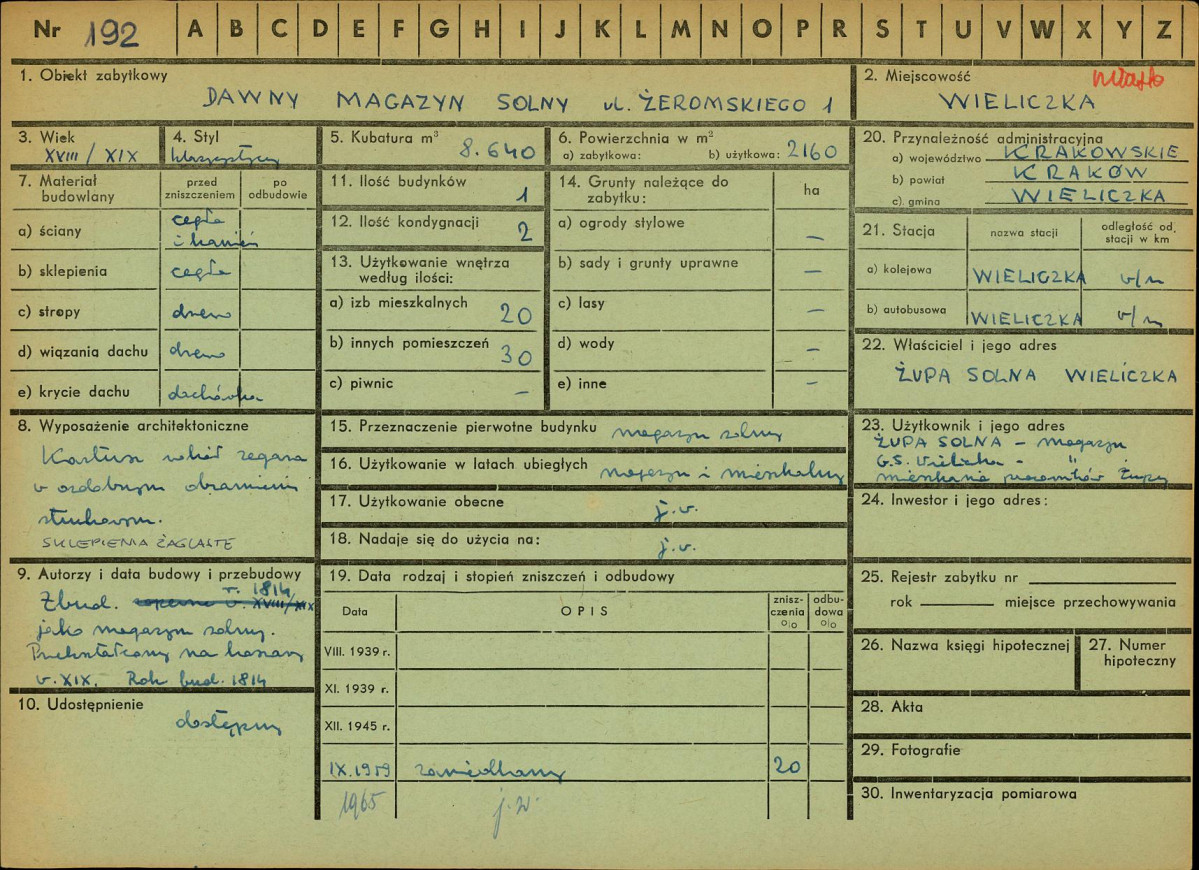 Nr 192 A B C D E F G H I J K L M N O P R S T U V W X Y Z
1. Obiekt zabytkowy
DAWNY MAGAZYN SOLNY ul. ŻEROMSKIEGO 1
2. Miejscowość miasto
WIELICZKA
3. Wiek
XVIII/XIX
4. Styl
klasycystyczny
5. Kubatura m³
8.640
6. Powierzchnia w m²
a) zabytkowa: b) użytkowa: 2160
7. Materiał budowlany
przed zniszczeniem
po odbudowie
a) ściany cegła
i kamień
b) sklepienia cegła
c) stropy drewno
d) wiązania dachu drewno
e) krycie dachu dachówka
8. Wyposażenie architektoniczne
Kartusz wokół zegara
w ozdobnym obramieniu
stiukowym.
SKLEPIENIA ŻAGLASTE
9. Autorzy i data budowy i przebudowy
r. 1814
Zbud. XVIII/XIX
jako magazyn solny.
Przekształcony na koszary
w. XIX. Rok bud. 1814
10. Udostępnienie
dostępny
11. Ilość budynków
1
12. Ilość kondygnacji
2
13. Użytkowanie wnętrza
według ilości:
a) izb mieszkalnych
20
b) innych pomieszczeń
30
c) piwnic –
14. Grunty należące do
zabytku:
ha
a) ogrody stylowe –
b) sady i grunty uprawne –
c) lasy –
d) wody –
e) inne –
15. Przeznaczenie pierwotne budynku magazyn solny
16. Użytkowanie w latach ubiegłych magazyn i mieszkalny
17. Użytkowanie obecne j.w.
18. Nadaje się do użycia na: j.w.
19. Data rodzaj i stopień zniszczeń i odbudowy
Data
OPIS
znisz-
czenia
%
odbu-
dowa
%
VIII. 1939 r.
XI. 1939 r.
XII. 1945 r.
IX.1959 zaniedbany 20
1965 j.w.
20. Przynależność administracyjna
a) województwo KRAKOWSKIE
b) powiat KRAKÓW
c) gmina WIELICZKA
21. Stacja
nazwa stacji
odległość od
stacji w km
a) kolejowa WIELICZKA w/m
b) autobusowa WIELICZKA w/m
22. Właściciel i jego adres
ŻUPA SOLNA WIELICZKA
23. Użytkownik i jego adres
ŻUPA SOLNA – magazyn
G.S. Wieliczka – "
mieszkania pracowników Żupy
24. Inwestor i jego adres:
25. Rejestr zabytku nr
rok miejsce przechowywania
26. Nazwa księgi hipotecznej
27. Numer
hipoteczny
28. Akta
29. Fotografie
30. Inwentaryzacja pomiarowa